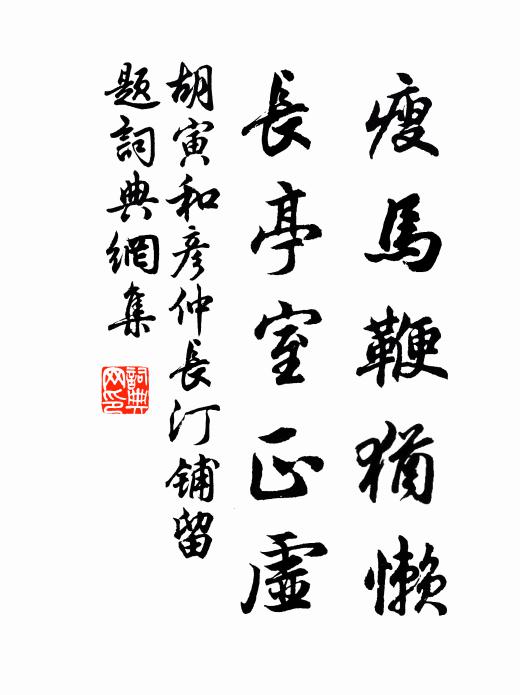 瘦馬鞭猶懶
長亭室正虛
胡寅和彥仲長汀鋪留
題詞典網集
詞典網印